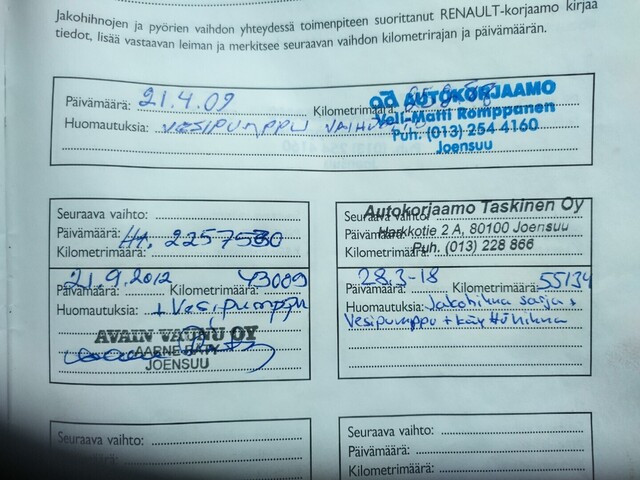 Jakohihnojen ja pyörien vaihdon yhteydessä toimenpiteen suorittanut RENAULT-korjaamo kirjaa
tiedot, lisää vastaavan leiman ja merkitsee seuraavan vaihdon kilometrirajan ja päivämäärän.
Päivämäärä: 21.4.09 Kilometrimäärä:
Huomautuksia: VESIPUMPPU
AUTOKORJAAMO
Veli-Matti Romppanen
Puh. (013) 254 4160
Joensuu
Seuraava vaihto:
Päivämäärä:
Kilometrimäärä:
21.9.2012 43009
Päivämäärä: Kilometrimäärä:
Huomautuksia: + Vesipumppu
AVAIN VAUNU OY
JOENSUU
Autokorjaamo Taskinen Oy
Seuraava vaihto:
Päivämäärä: Harkkotie 2 A, 80100 Joensuu
Kilometrimäärä: Puh. (013) 228 866
28.3-18 55134
Päivämäärä: Kilometrimäärä:
Huomautuksia: Jakohihna sarja +
Vesipumppu +
Seuraava vaihto:
Seuraava vaihto:
Päivämäärä:
Kilometrimäärä: